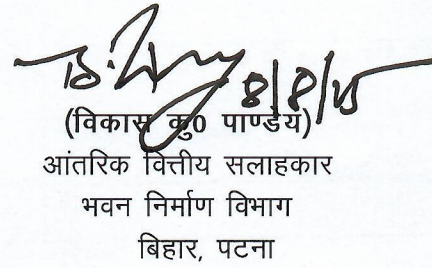 8/8/15
(विकास कु0 पाण्डेय)
आंतरिक वित्तीय सलाहकार
भवन निर्माण विभाग
बिहार, पटना